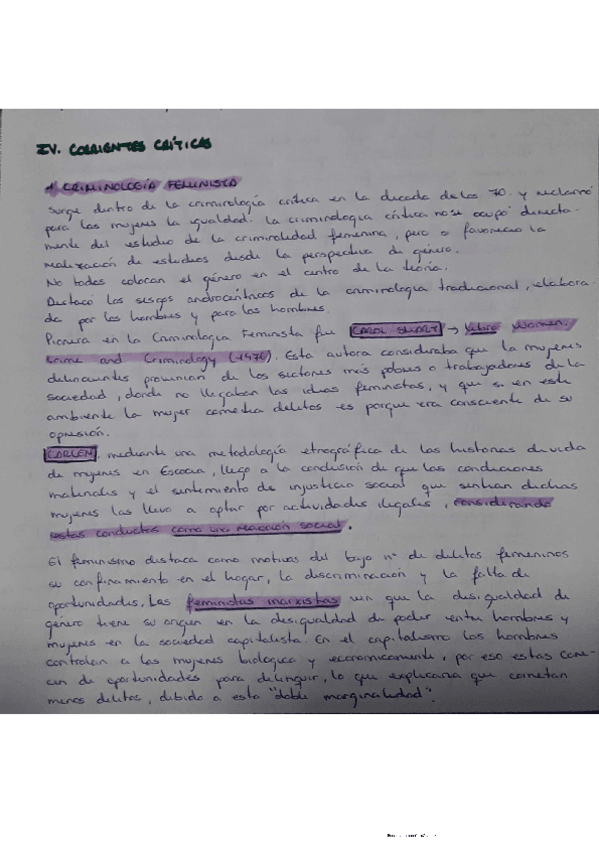 IV. CORRIENTES CRÍTICAS
1 CRIMINOLOGÍA FEMINISTA
Surge dentro de la criminología crítica en la decada de los 70 y reclamó
para las mujeres la igualdad. La criminología crítica no se ocupó directa-
mente del estudio de la criminalidad femenina, pero favoreció la
realización de estudios desde la perspectiva de género.
No todos colocan el género en el centro de la teoría.
Destacó los sesgos androcéntricos de la criminología tradicional, elabora-
da por los hombres y para los hombres.
Pionera en la Criminología Feminista fue CAROL SMART → libro Women.
Crime and Criminology (1976). Esta autora consideraba que la mujeres
delincuentes provenían de los sectores más pobres o trabajadores de la
sociedad, donde no llegaban las ideas feministas, y que si en este
ambiente la mujer cometía delitos es porque era consciente de su
opresión.
CARLEN, mediante una metodología etnográfica de las historias de vida
de mujeres en Escocia, llegó a la conclusión de que las condiciones
materiales y el sentimiento de injusticia social que sentían dichas
mujeres las llevó a optar por actividades ilegales, considerando
estas conductas como una reacción social.
El feminismo destaca como motivos del bajo nº de delitos femeninos
su confinamiento en el hogar, la discriminación y la falta de
oportunidades. Las feministas marxistas ven que la desigualdad de
género tiene su origen en la desigualdad de poder entre hombres y
mujeres en la sociedad capitalista. En el capitalismo los hombres
controlan a las mujeres biologica y economicamente, por eso estas care-
cen de oportunidades para delinquir, lo que explicaría que cometan
menos delitos, debido a esta "doble marginalidad".